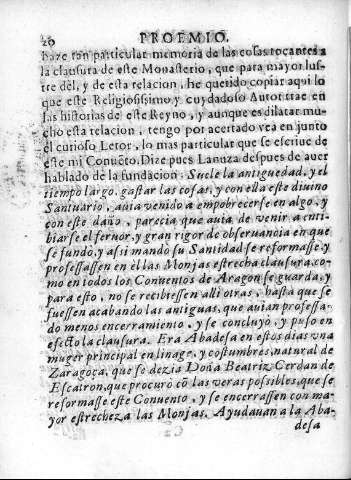 20 PROEMIO.
haze tan particular memoria de las cosas tocantes a
la clausura de este Monasterio, que para mayor lus-
tre dèl, y de esta relacion, he querido copiar aqui lo
que este Religiosissimo, y cuydadoso Autor trae en
las historias de este Reyno, y aunque es dilatar mu-
cho esta relacion, tengo por acertado vea en junto
el curioso Letor, lo mas particular que se escriue de
este mi Conuẽto. Dize pues Lanuza despues de auer
hablado de la fundacion: Suele la antiguedad, y el
tiempo largo, gastar las cosas, y con ella este diuino
Santuario, auia venido a empobrecerse en algo, y
con este daño, parecia que auia de venir a enti-
biarse el feruor, y gran rigor de obseruancia en que
se fundò, y assi mandò su Santidad se reformasse, y
professassen en èl las Monjas estrecha clausura, co-
mo en todos los Conuentos de Aragon se guarda, y
para esto, no se recibiessen alli otras, hasta que se
fuessen acabando las antiguas, que auian professa-
do menos encerramiento, y se concluyò, y puso en
efecto la clausura. Era Abadesa en estos dias vna
muger principal en linage, y costumbres, natural de
Zaragoça, que se dezia Doña Beatriz Cerdan de
Escatron, que procurò cõ las veras possibles, que se
reformasse este Conuento, y se encerrassen con ma-
yor estrecheza las Monjas. Ayudauan a la Aba-
desa